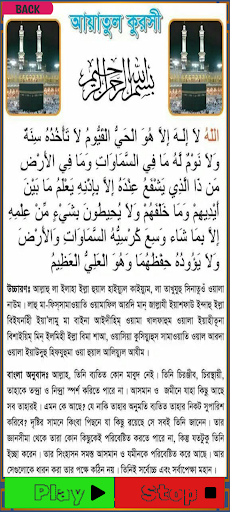 BACK
আয়াতুল কুরসী
بسم الله الرحمن الرحيم
اللهُ لَا إِلَهَ إِلَّا هُوَ الْحَيُّ الْقَيُّومُ لَا تَأْخُذُهُ سِنَةٌ
وَلَا نَوْمٌ لَهُ مَا فِي السَّمَاوَاتِ وَمَا فِي الْأَرْضِ
مَن ذَا الَّذِي يَشْفَعُ عِنْدَهُ إِلَّا بِإِذْنِهِ يَعْلَمُ مَا بَيْنَ
أَيْدِيهِمْ وَمَا خَلْفَهُمْ وَلَا يُحِيطُونَ بِشَيْءٍ مِّنْ عِلْمِهِ
إِلَّا بِمَا شَاءَ وَسِعَ كُرْسِيُّهُ السَّمَاوَاتِ وَالْأَرْضَ
وَلَا يَؤُودُهُ حِفْظُهُمَا وَهُوَ الْعَلِيُّ الْعَظِيمُ
উচ্চারণঃ আল্লাহু লা ইলাহা ইল্লা হুয়াল হাইয়্যুল কাইয়্যুম, লা তা'খুযুহু সিনাতুওঁ ওয়ালা
নাউম। লাহু মা-ফিস্সামাওয়াতি ওয়ামাফিল আরদি মান জাল্লাযী ইয়াশফাউ ইনদাহু ইল্লা
বিইযনাহী ইয়া'লামু মা বাইনা আইদীহিম ওয়ামা খালফাহুম ওয়ালা ইয়াহীতূনা
বিশাইয়িম মিন ইলমিহী ইল্লা বিমা শাআ, ওয়াসিয়া কুরসিয়্যুহুস সামাওয়াতি ওয়াল আরদা
ওয়ালা ইয়াউদুহু হিফযুহুমা ওয়া হুয়াল আলিয়্যুল আযীম।
বাংলা অনুবাদঃ আল্লাহ, তিনি ব্যতিত কোন মাবুদ নেই। তিনি চিরজীব, চিরস্থায়ী,
তাহাকে তন্দ্রা ও নিদ্রা স্পর্শ করিতে পারে না। আসমান ও জমীনে যাহা কিছু আছে
সব তাহারই। এমন কে আছে? যে নাকি তাহার অনুমতি ব্যতিত তাহার নিকট সুপারিশ
করিবে? দৃষ্টির সামনে কিংবা পিছনে যা কিছু রয়েছে সে সবই তিনি জানেন। তার
জ্ঞানসীমা থেকে তারা কোন কিছুকেই পরিবেষ্টিত করতে পারে না, কিন্তু যতটুকু তিনি
ইচ্ছা করেন। তার সিংহাসন সমস্ত আসমান ও যমীনকে পরিবেষ্টিত করে আছে। আর
সেগুলোকে ধারন করা তার পক্ষে কঠিন নয়। তিনিই সর্বোচ্চ এবং সর্বাপেক্ষা মহান।
Play
Stop